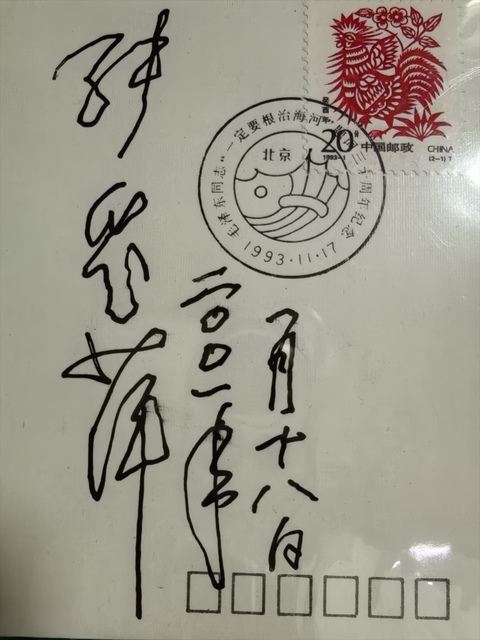 张爱萍
二〇〇一年
一月十八日
毛泽东同志"一定要根治海河"题词三十周年纪念
北京
1993·11·17
20分
1993-1
中国邮政 CHINA
(2-1)T